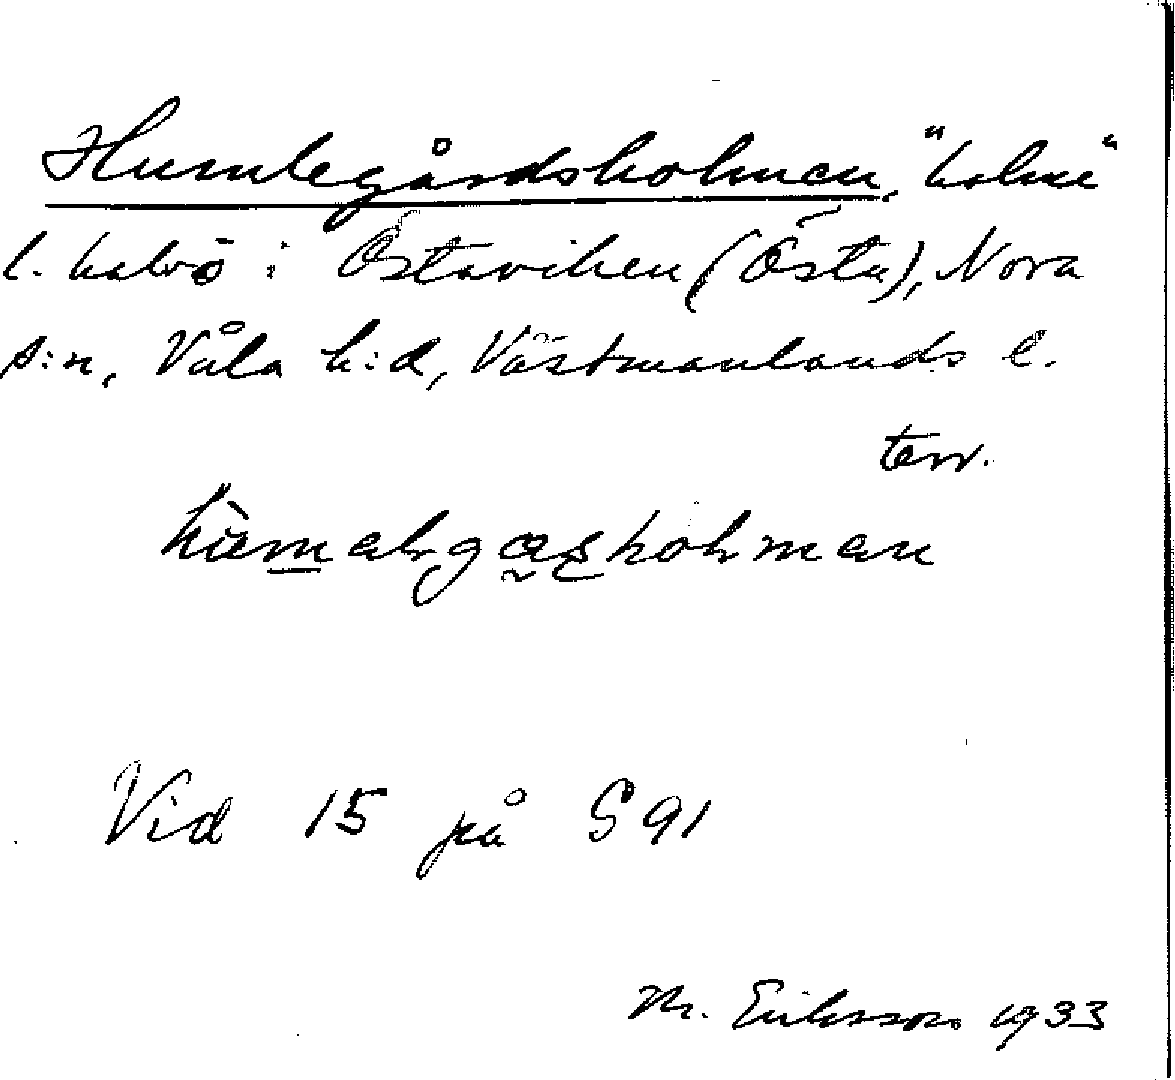 Humlegårdsholmen, "holme"
l. halvö i Östaviken (Östa), Nora
s:n, Våla h:d, Västmanlands l.
terr.
Vid 15 på S 91
M. Eriksson 1933